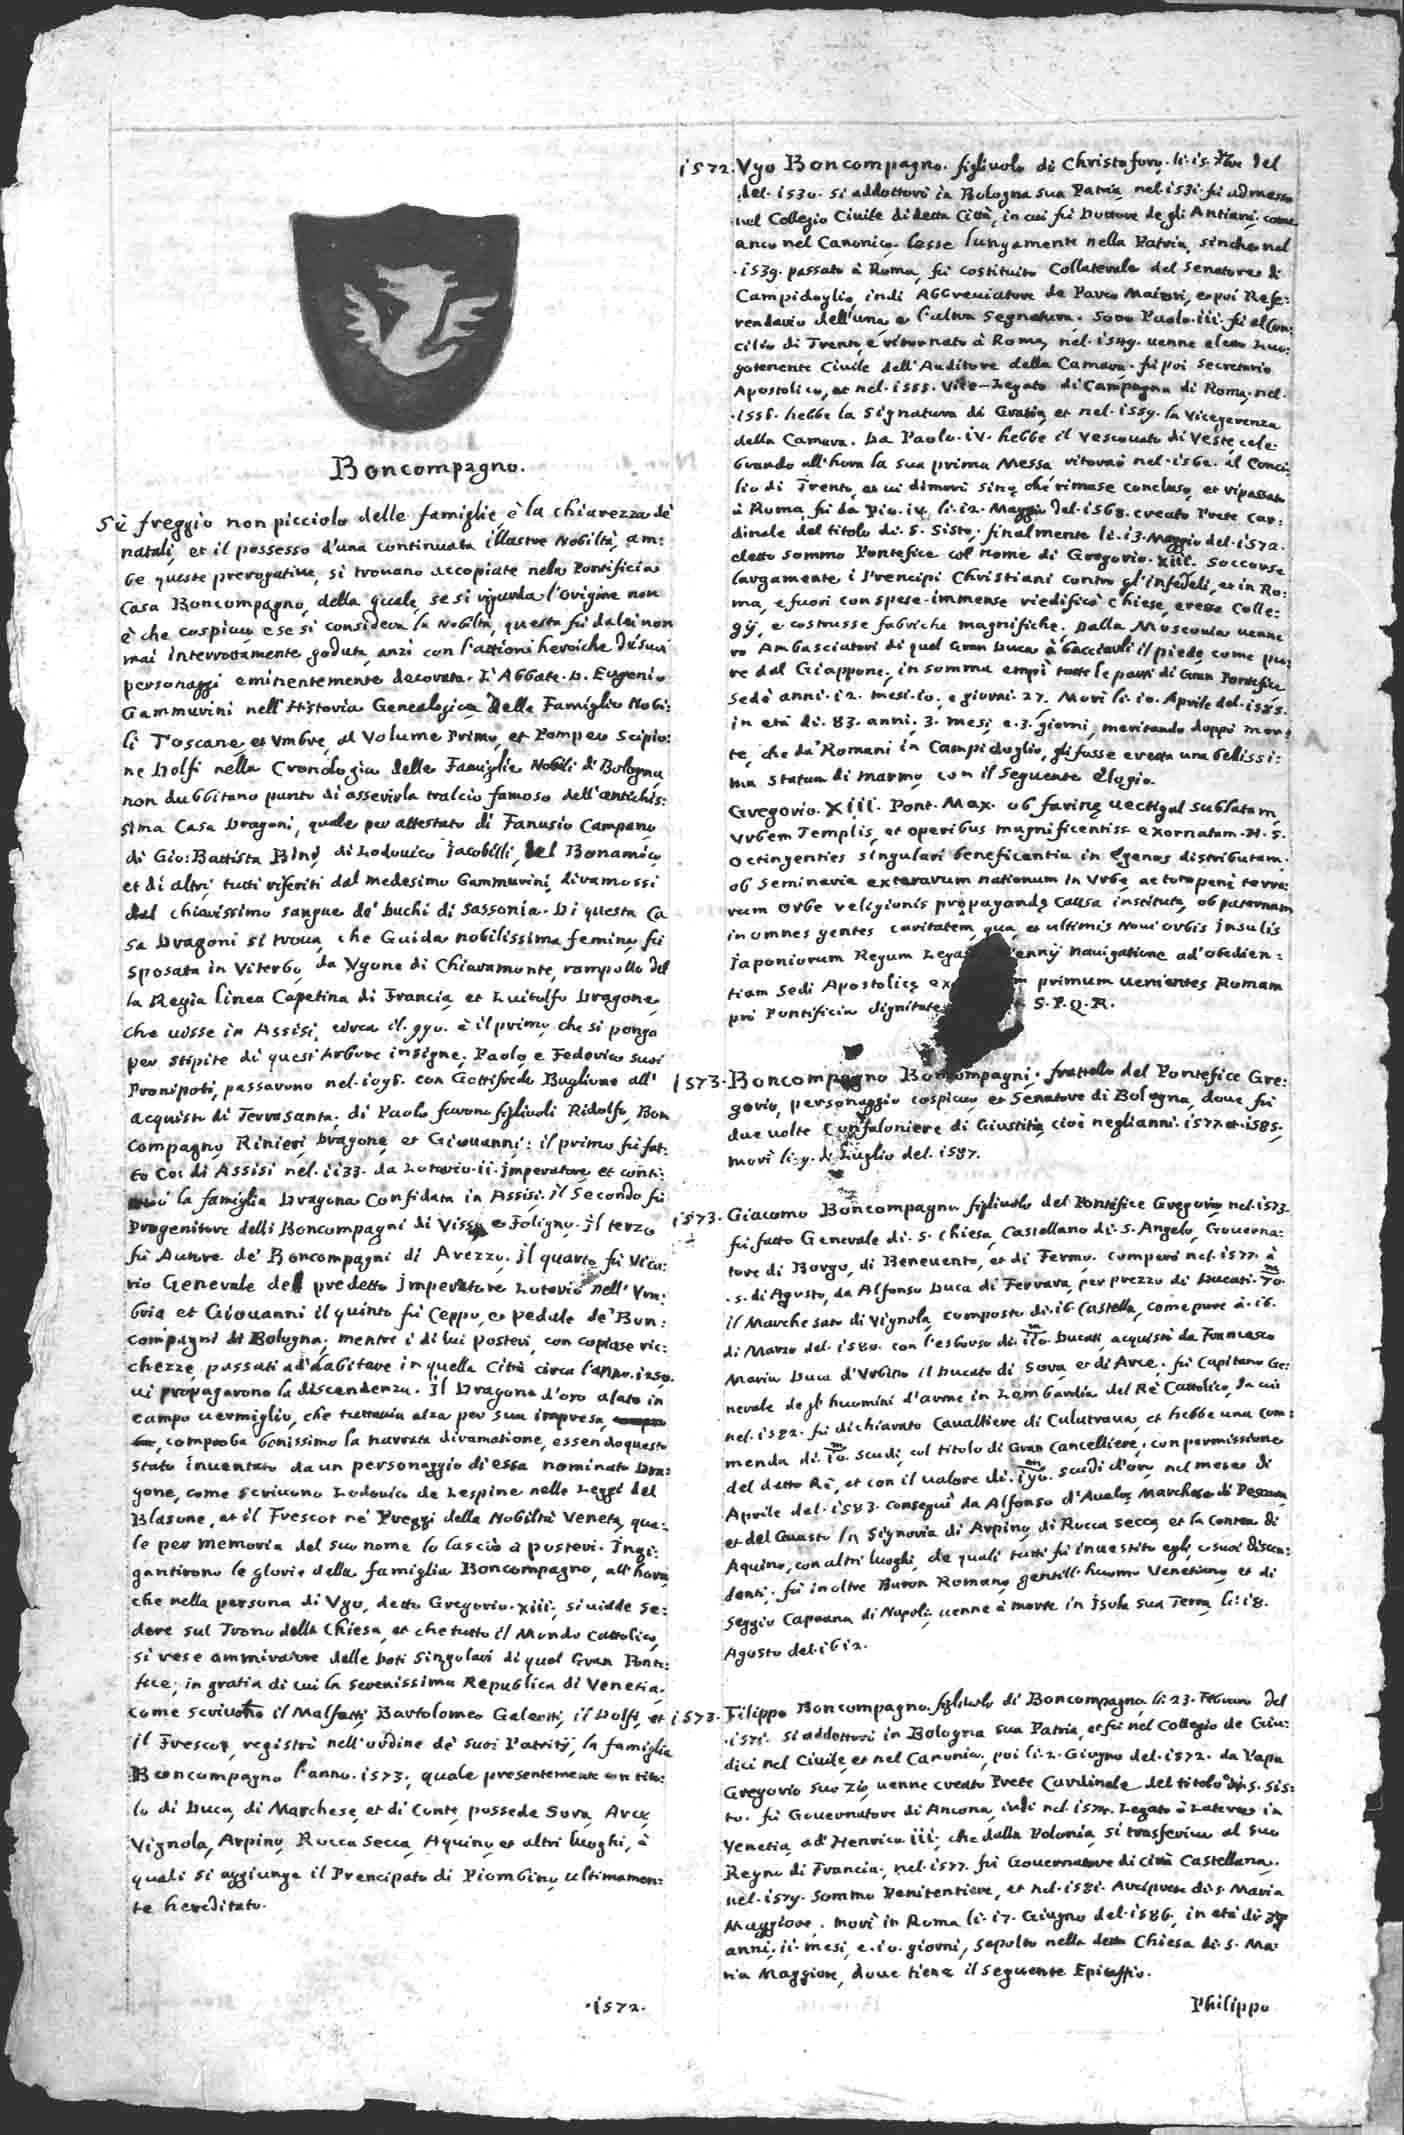 Boncompagno.
Sè freggio non picciolo delle famiglie, è la chiarezza de
natali, et il possesso d'una continuata illustre Nobiltà, am:
be queste prerogative, si trouano accopiate nela Pontificia
Casa Boncompagno, della quale, se si riguarda l'origine non
è che cospicua, e se si considera la Nobiltà, questa fù da lei non
mai interrottamente goduta, anzi con l'attioni heroiche de suoi
personaggi eminentemente decorata. L'Abbate D. Eugenio
Gammurini nell'Historia Genealogica delle Famiglie Nobi:
li Toscane, et Vmbre, al Volume Primo, et Pompeo Scipio:
ne Dolfi nella Cronologia delle Famiglie Nobili di Bologna,
non dubbitano punto di asserirla tralcio famoso dell'antichis:
sima Casa Dragoni, quale per attestato di Fanusio Campano,
di Gio: Battista Bini, di Lodouico Iacobilli, del Bonamico,
et di altri, tutti riferiti dal medesimo Gammurini, diramossi
dal chiarissimo sangue de' Duchi di Sassonia. Di questa Ca
sa Dragoni si troua, che Guida nobilissima femina, fù
sposata in Viterbo, da Vgone di Chiaramonte, rampollo del
la Regia linea Capetina di Francia, et Luitolfo Dragone,
che uisse in Assisi, circa il .990. è il primo, che si ponga
per stipite di quest'Arbore insigne. Paolo, e Federico suoi
Pronipoti, passarono nel .1096. con Gottifredo Buglione all'
acquisto di Terrasanta, di Paolo furono figliuoli Ridolfo, Bon
compagno, Rinieri, Dragone, et Giouanni: il primo fù fat:
to Co: di Assisi nel .1133. da Lotario .ii. Imperatore, et conti:
nuò la famiglia Dragona Confidata in Assisi. il Secondo fù
Progenitore delli Boncompagni di Visso, e Foligno. il terzo
fù Autore de' Boncompagni di Arezzo. il quarto fù Vica:
rio Generale del predetto Imperatore Lotario nell'Vm:
bria et Giouanni il quinto fù Ceppo, e pedale de' Bon:
compagni di Bologna, mentre i di lui posteri, con copiose ric:
chezze, passati ad'habitare in quella Città circa l'anno .1250.
ui propagarono la discendenza. Il Dragone d'oro alato in
campo uermiglio, che tuttauia alza per sua impresa,
comproba bonissimo la narrata diramatione, essendo questo
stato inuentato da un personaggio di essa nominato Dra:
gone, come scriuono Lodouico de Lespine nelle Leggi del
Blasone, et il Frescot ne' Preggi della Nobiltà Veneta, qua:
le per memoria del suo nome lo lasciò a posteri. Ingi:
gantirono le glorie della famiglia Boncompagno, all'hora,
che nella persona di Vgo, detto Gregorio .xiii. si uidde se:
dere sul Trono della Chiesa, et che tutto il Mondo Cattolico,
si rese ammiratore delle doti singolari di quel Gran Ponte:
fice; in gratia di cui la Serenissima Republica di Venetia,
come scriuono il Malfatti, Bartolomeo Galeotti, il Dolfi, et
il Frescot, registrò nell'ordine de suoi Patritij, la famiglia
Boncompagno l'anno .1573. quale presentemente con tito:
lo di Duca, di Marchese, et di Conte, possede Sora, Arce,
Vignola, Arpino, Rocca Secca, Aquino, et altri luoghi, à
quali si aggiunge il Prencipato di Piombino, ultimamen:
te hereditato.
.1572.
1572. Vgo Boncompagno. figliuolo di Christoforo. li .15. del
del .1530. si addottorò in Bologna sua Patria, nel .1531. fù admesso
nel Collegio Ciuile di detta Città, in cui fù Dottore de gli Antiani, come
anco nel Canonico. lesse lungamente nella Patria, sinche nel
.1539. passato à Roma, fù costituito Collaterale del Senatore di
Campidoglio, indi Abbreuiatore de Parco Maiori, e poi Refe:
rendario dell'una, e l'altra Segnatura. Sotto Paolo .iii. fù al Con:
cilio di Trento, e ritornato à Roma, nel .1549. uenne eletto Luo:
gotenente Ciuile dell'Auditore della Camera. fù poi Secretario
Apostolico, et nel .1555. Vice-Legato di Campagna di Roma, nel
.1556. hebbe la Signatura di Gratia, et nel .1559. la Vicegerenza
della Camera. Da Paolo .iv. hebbe il Vescouato di Veste, cele:
brando all'hora la sua prima Messa, ritornò nel .1562. al Conci:
lio di Trento, et ui dimorò sino che rimase concluso, et ripassato
à Roma, fù da Pio .iv. li .12. Maggio del .1568. creato Prete Car:
dinale del titolo di .S. Sisto. finalmente li .13. Maggio del .1572.
eletto Sommo Pontefice col nome di Gregorio .xiii. Soccorse
largamente i Prencipi Christiani contro gl'infedeli, et in Ro:
ma, e fuori con spese immense riedificò Chiese, eresse Colle:
gij, e costrusse fabriche magnifiche. Dalla Moscouia uenne
ro Ambasciatori di quel Gran Duca à bacciarli il piede, come pu:
re dal Giappone, in somma empì tutte le parti di Gran Pontefice
Sedè anni .12. mesi .10. e giorni .27. Morì li .10. Aprile del .1585.
in età di .83. anni, 3. mesi, e .3. giorni, meritando doppò mor:
te, che da' Romani in Campidoglio, gli fusse eretta una bellissi:
ma statua di marmo, con il seguente Elogio.
Gregorio .XIII. Pont. Max. ob farinę uectigal sublatum,
Vrbem Templis, et operibus magnificentiss. exornatam. H.S.
octingenties singulari beneficentia in Egenos distributam.
ob Seminaria exterarum nationum in Vrbe, ac toto penè terra:
rum orbe religionis propagandę causa instituta, ob paternam
in omnes gentes caritatem, qua, ex ultimis Noui orbis insulis
Iaponiorum Regum Lega ennij nauigatione ad'obedien:
tiam Sedi Apostolicę ex primum uenientes Romam
prò Pontificia dignitate S.P.Q.R.
1573. Boncompagno Boncompagni. fratello del Pontefice Gre:
gorio, personaggio cospicuo, et Senatore di Bologna, doue fù
due uolte Confaloniere di Giustitia, cioè negli anni .1577. et .1585.
morì li .9. di Luglio del .1587.
1573. Giacomo Boncompagno figliuolo del Pontefice Gregorio, nel .1573.
fù fatto Generale di .S. Chiesa, Castellano di .S. Angelo, Gouerna:
tore di Borgo, di Beneuento, et di Fermo. comperò nel .1577. à
.5. di Agosto, da Alfonso Duca di Ferrara, per prezzo di Ducati .70.m
il Marchesato di Vignola, composto di .16. Castella, come pure à .16.
di Marzo del .1580. con l'esborso di .110.m Ducati, acquistò da Francesco
Maria Duca d'Vrbino il Ducato di Sora, et di Arce. fù Capitano Ge:
nerale degl'huomini d'arme in Lombardia del Rè Cattolico, da cui
nel .1582. fù dichiarato Caualliere di Calatraua, et hebbe una Com:
menda di .10.m scudi, col titolo di Gran Cancelliere. con permissione
del detto Rè, et con il ualore di .190.m scudi d'oro, nel mese di
Aprile del .1583. conseguì da Alfonso d'Aualos, Marchese di Pescara,
et del Guasto la Signoria di Arpino, di Rocca Secca, et la Contea di
Aquino, con altri luoghi, de quali tutti fù inuestito egli, e suoi discen:
denti. fù inoltre Baron Romano, gentill'huomo Venetiano, et di
Seggio Capoana di Napoli, uenne à morte in Isola sua Terra, li .18.
Agosto del .1612.
1573. Filippo Boncompagno. figliuolo di Boncompagno, li .23. Febraro del
.1571. si addottorò in Bologna sua Patria, et fù nel Collegio de Giu:
dici nel Ciuile, et nel Canonico, poi li .2. Giugno del .1572. da Papa
Gregorio suo Zio, uenne creato Prete Cardinale del titolo di .S. Sis:
to. fù Gouernatore di Ancona, indi nel .1574. Legato à Latere in
Venetia, ad'Henrico .iii. che dalla Polonia, si trasferiua al suo
Regno di Francia, nel .1577. fù Gouernatore di Città Castellana,
nel .1579. Sommo Penitentiere, et nel .1581. Arciprete di .S. Maria
Maggiore. morì in Roma li .17. Giugno del .1586. in età di
anni, 11. mesi, e .10. giorni, sepolto nella detta Chiesa di .S. Ma
ria Maggiore, doue tiene il seguente Epitaffio.
Philippo